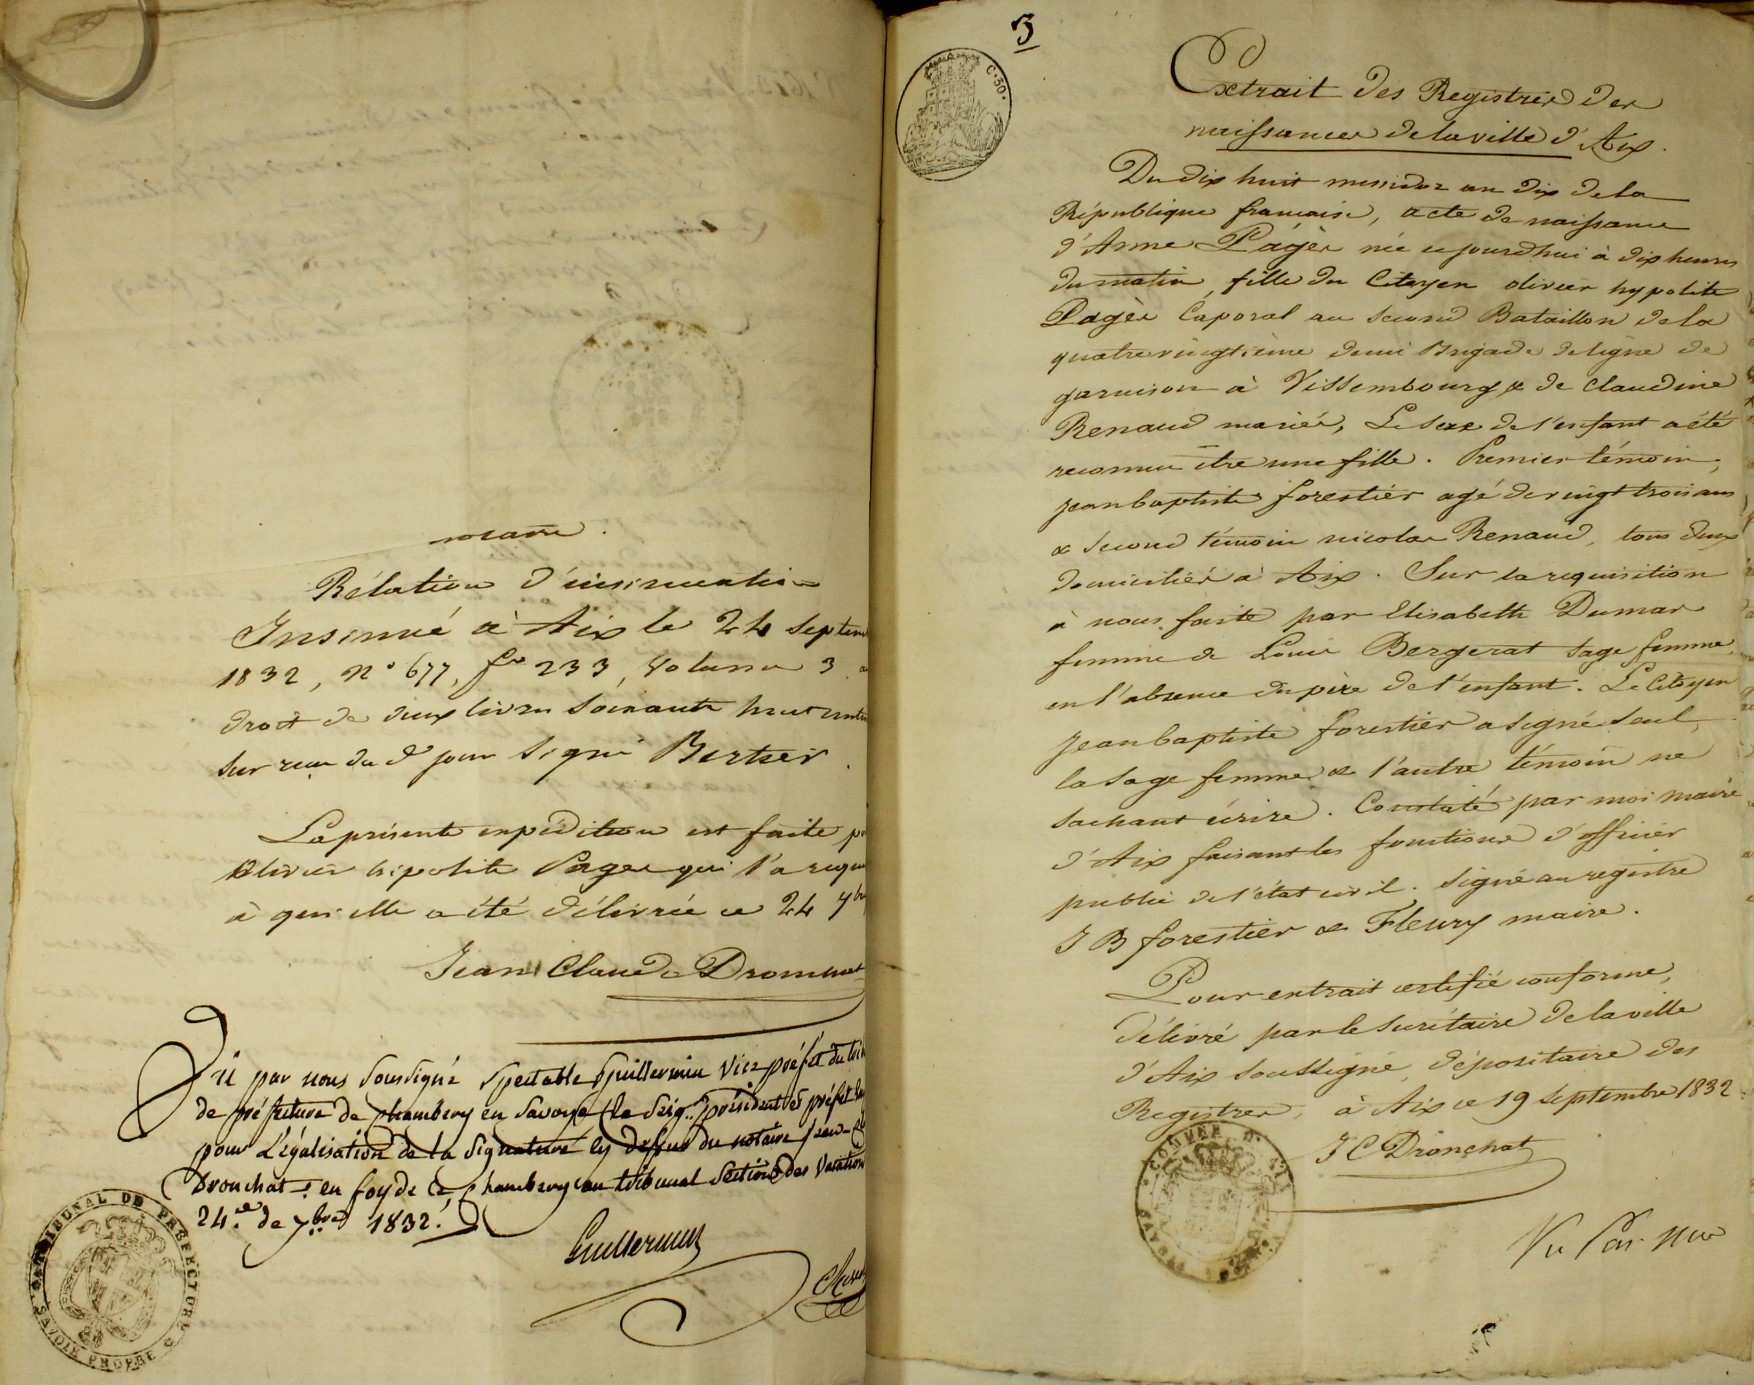 notaire.
Rélation d'insinuation
Insinué à Aix le 24 Septem
1832, n° 677, f° 233, volume 3
droit de deux livres soixante huit
sur reçu du d. jour signé Bertier.
La présente expédition est faite p
olivier hipolite Pages qui l'a requi
à qui elle a été délivrée ce 24 7br
Jean Claude Dronchat
Vu par nous soussigné Spectable Guillermin Vice préfet du
de préfecture de Chambery en Savoye (le Seig.r président et préfet
pour Légalisation de la Signature cy dessus du notaire jean
Dronchat: en foy de ce, Chambery au tribunal Section des Vacation
24.e de 7bre 1832.
Guillermin
TRIBUNAL DE PREFECTURE
SAVOIE PROPRE
3
C. 50.
Extrait des Registres des
naissances de la ville d'Aix.
Du dix huit messidor an dix de la
République française, acte de naissance
d'Anne Pagès née cejourdhui à dix heures
du matin, fille du Citoyen olivier hypolite
Pagès Caporal au second Bataillon de la
quatre vingtieme demi Brigade de ligne de
garnison à Vissembourg & de claudine
Renaud mariés, Le sexe de l'enfant a été
reconnu être une fille. Premier témoin,
jean baptiste forestier agé de vingt trois ans
& second témoin nicolas Renaud, tous deux
domiciliés à Aix. Sur la requisition
à nous faite par Elisabeth Dumas
femme de Louis Bergerat sage femme,
en l'absence du père de l'enfant. Le Citoyen
jean baptiste forestier a signé seul,
la sage femme & l'autre témoin ne
sachant écrire. Constaté par moi maire
d'Aix faisant les fonctions d'officier
public de l'état civil. signé au registre
J B forestier & Fleury maire.
Pour extrait certifié conforme,
délivré par le secrétaire de la ville
d'Aix soussigné, dépositaire des
Registres, à Aix ce 19 septembre 1832
J C Dronchat
Vu